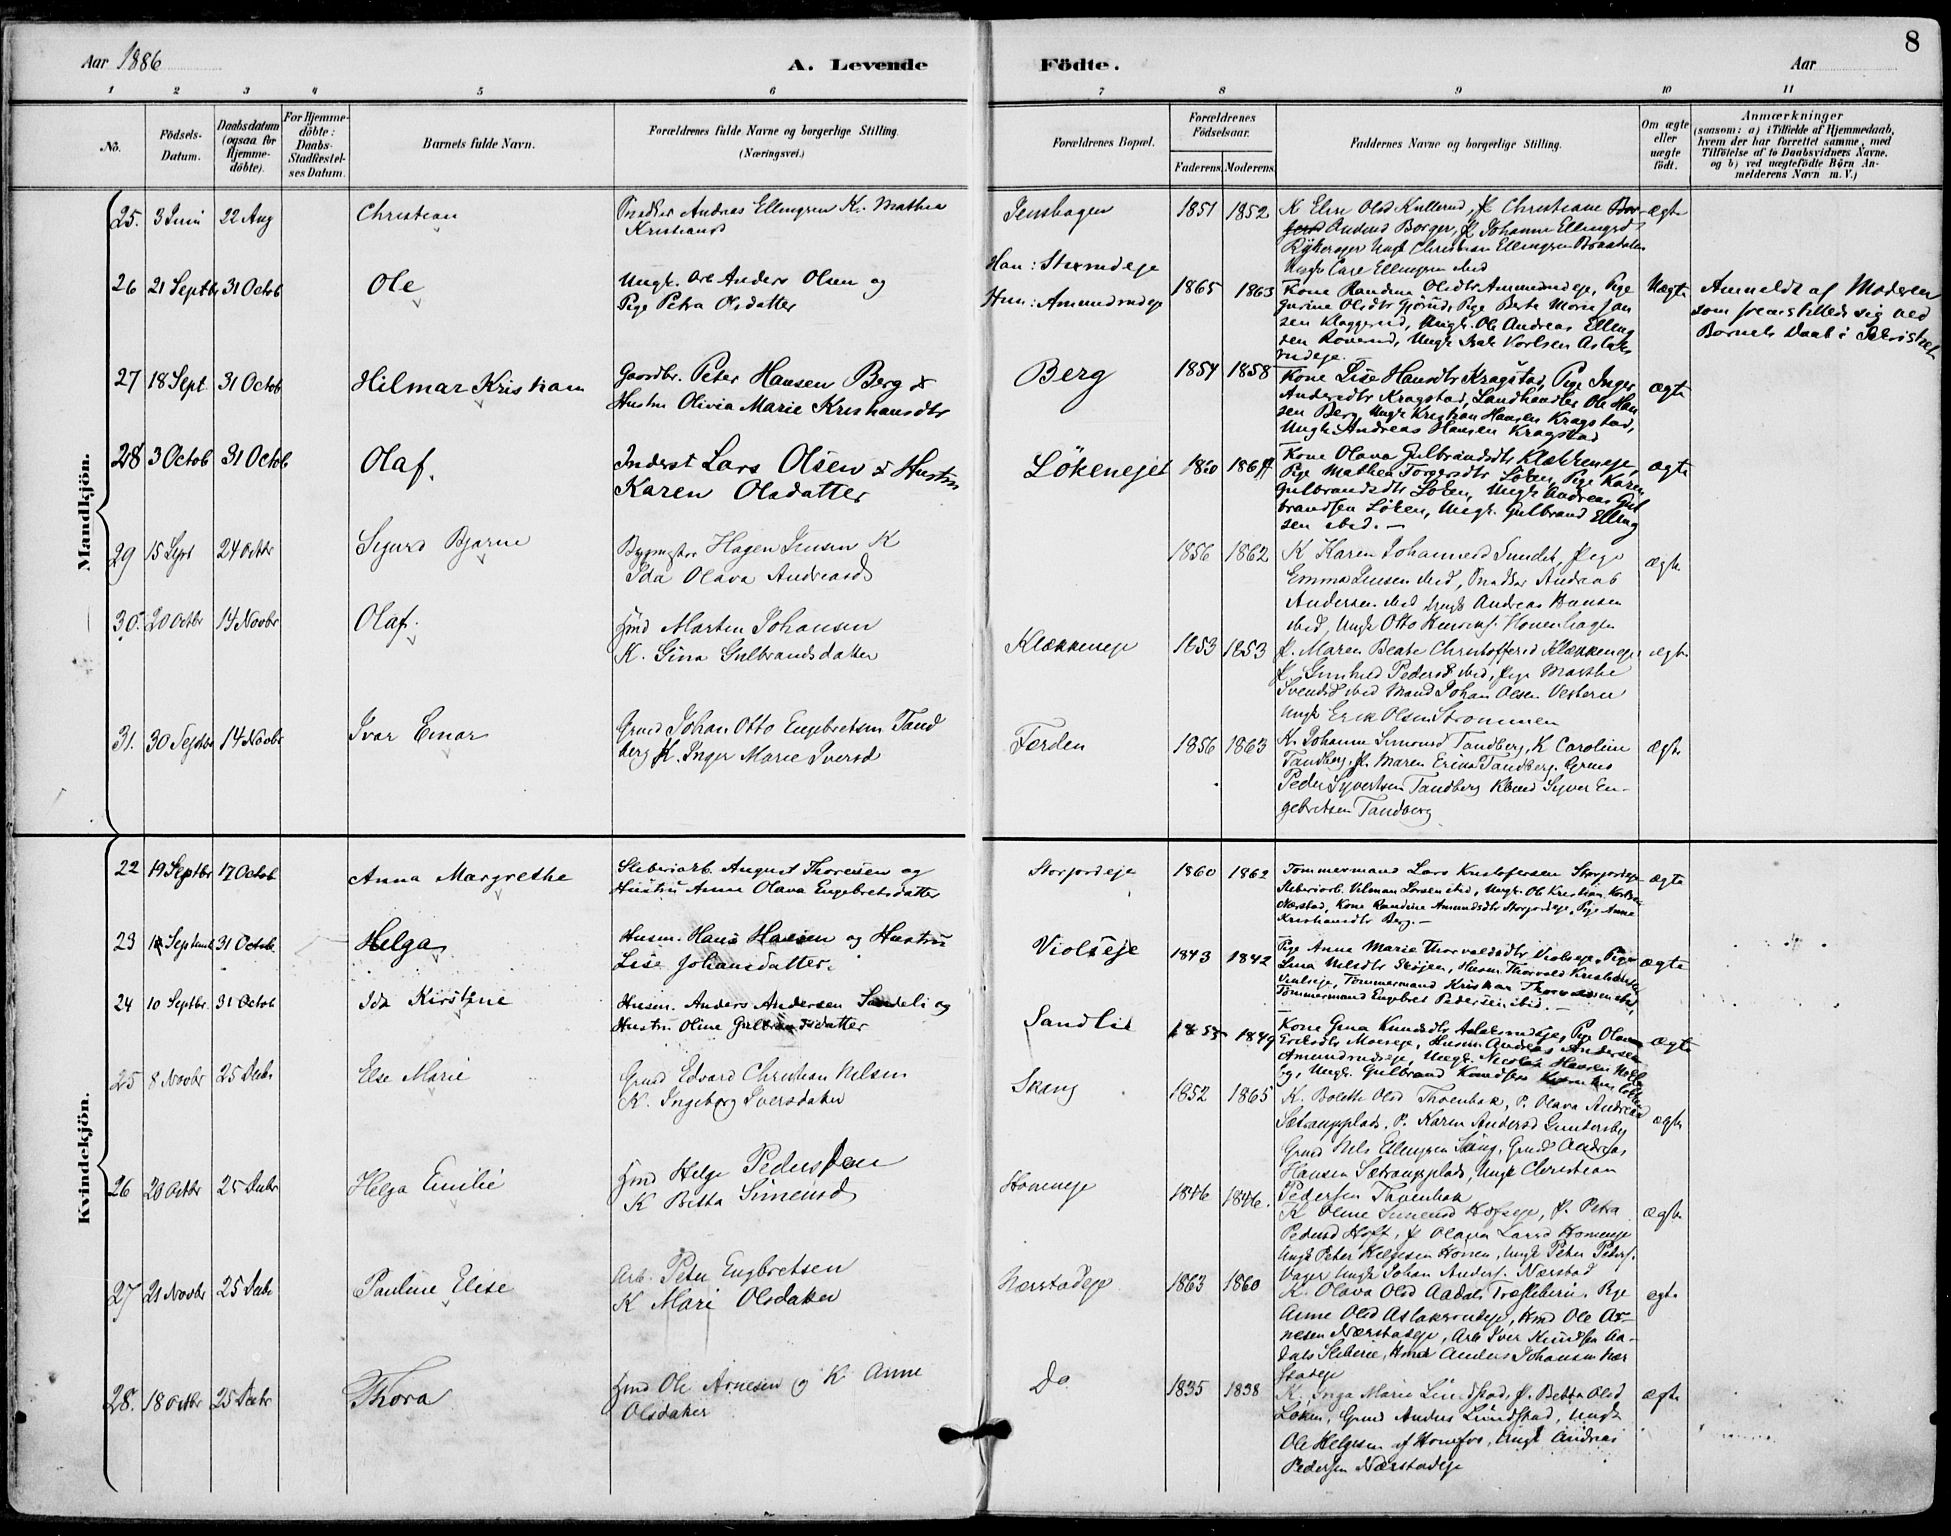 8
Aar 1886
A. Levende
Födte.
Aar
1 2 3 4 5 6 7 8 9 10 11
No.
Födsels-
Datum.
Daabsdatum
(ogsaa for
Hjemme-
döbte).
For Hjemme-
döbte:
Daabs-
Stadfæstel-
ses Datum.
Barnets fulde Navn.
Forældrenes fulde Navne og borgerlige Stilling.
(Næringsvei.)
Forældrenes Bopæl.
Forældrenes
Födselsaar.
Faderens. Moderens.
Faddernes Navne og borgerlige Stilling.
Om ægte
eller
uægte
födt.
Anmærkninger
(saasom: a) i Tilfælde af Hjemmedaab,
hvem der har forrettet samme, med
Tilföielse af to Daabsvidners Navne,
og b) ved uægtefödte Börn An-
melderens Navn m. V.)
Mandkjön.
25. 3 Juni 22 Aug
Christian
Snedker Andreas Ellingsen K. Mathea
Kristiansd
Jenshagen
1851 1852
K Elise Olsd Kullerud, P Christiane
Andersd Borger, P Johanne Ellingsd
Rykerager Ungk Christian Ellingsen
ægte
26 21 Septbr 31 Octob
Ole
Ungk. Ole Anders Olsen og
Pige Petra Olsdatter
Han: Strandeje
Hun: Amundrudeje
1865 1863
Kone Randine Olsdtr Amundrudeje, Pige
Gurine Olsdtr Gjörud, Pige Berte Marie Jan
sen Klaggerud, Ungk. Ole Andreas Elling
sen Rouerud, Ungk Isak Karlsen Aslaks
rudeje.
Uægte
Anmeldt af Moderen
som fremstillede sig ved
Barnets Daab i
27 18 Sept 31 Octob
Hilmar Kristian
Gaardbr. Peter Hansen Berg &
Hustru Olivia Marie Kristiansdtr
Berg
1854 1858
Kone Lise Hansdtr Kragstad, Pige Inger
Andersdtr Kragstad, Landhandler Ole Han
sen Berg, Ungk Kristian Hansen Kragstad,
Ungk Andreas Hansen Kragstad
ægte
28 3 Octob 31 Octob
Olaf.
Inderst Lars Olsen & Hustru
Karen Olsdatter
Lökenejet
1860
Kone Olava Gulbrandsdtr Klækkeneje,
Pige Mathea Torgersdtr Löken, Pige Karen
Gulbrandsdtr Löken, Ungk Andreas Gul
brandsen Löken, Ungk. Gulbrand Elling
sen ibid. —
ægte
29 15 Sept 24 Octbr
Sigurd Bjarne
Bygmester Hagen Jensen K
Ida Olava Andreasd
1856 1862
K Karen Johannesd Sundet, Pige
Emma Jensen ibid, Snedker Andreas
Andersen ibid Ungk Andreas Hansen
ibid, Ungk Otto
ægte
30. 20 Octbr 14 Novbr
Olaf.
Hmd Morten Johansen
K. Gina Gulbrandsdatter
Klækkeneje
1853 1853
P. Maren Beate Christoffersd Klækkeneje
P. Gunhild Pedersd ibid, Pige Marthe
Svendsd ibid Mand Johan Olsen Vesteren
Ungk Erik Olsen Strømmen
ægte
31. 30 Septbr 14 Novbr
Ivar Einar
Grmd Johan Otto Engebretsen Tand
berg K. Inger Marie Iversd
Ferden
1856 1863
K. Johanne Simonsd Tandberg, K Caroline
Tandberg, P. Maren Erika Tandberg. Grmd
Peder Syvertsen Tandberg Kbmd Syver En-
gebretsen Tandberg
ægte
Kvindekjön.
22 19 Septbr 17 Octob
Anna Margrethe
Sliberiarb. August Thoresen og
Hustru Anne Olava Engebretsdatter
Storjordeje
1860 1862
Tømmermand Lars Kristofersen Storjordeje
Sliberiarb. Vilman Larsen ibid, Ungk. Ole Kristian Karlsen
Nærstad, Kone Randine Amundsdtr Storjordeje, Pige Anne
Kristiansdtr Berg. —
ægte
23 Septemb 31 Octob
Helga
Husm. Hans Hansen og Hustru
Lise Johansdatter.
Violseje
1843 1842
Pige Anne Marie Thorvaldsdtr Violseje, Pige
Lina Nilsdtr Skøjen, Husm Thorvald Kristiansen
Violseje, Tømmermand Kristian Thorvaldsen ibid,
Tømmermand Engebret Pedersen ibid. —
ægte
24 10 Septbr. 31 Octob
Ida Kirstine
Husm. Anders Andersen Sandeli og
Hustru Oline Gulbrandsdatter
Sandlie
1855 1849
Kone Gina Knudsdtr Aslaksrudeje, Pige Olava
Eriksdtr Moeseje, Husm Andreas Andersen
Amundrudeje, Ungk. Nicolai Hansen
Ungk. Gulbrand Knudsen
ægte
25 8 Novbr 25 Decbr
Else Marie
Grmd Edvard Christian Nilsen
K. Ingeborg Iversdatter
Skaug
1852 1865
K. Bolette Olsd Thoenbak, P. Olava Andreasd
Sætrangplads, P. Karen Andersd Gundersby
Grmd Nils Ellingsen Skaug, Grmd Andreas
Hansen Sætrangplads, Ungk Christian
Pedersen Thoenbak
ægte
26 20 Octbr 25 Decbr
Helga Emilie
Hmd Helge Pedersen
K Betha Simensd
Honeneje
1846 1846.
K Oline Simensd Hofseje, P. Petra
Pedersd Hoff, P Olava Larsd Honeneje
Ungk Peter Helgesen Honen, Ungk Peter Peders.
Vager Ungk Johan Anders. Nærstad
ægte
27 21 Novbr 25 Decbr
Pauline Elise
Arb. Peter Engbretsen
K Mari Olsdatter
Nærstadeje
1863 1860
K. Olava Olsd Aadals Træsliberi, Pige
Anne Olsd Aslaksrudeje, Hmd Ole Ar-
nesen Nærstadeje, Arb Iver Knudsen Aa-
dals Sliberie, Hmd Anders Johansen Nær
stadeje
ægte
28. 18 Octbr 25 Decbr
Thora
Hmd Ole Arnesen og K Anne
Olsdatter
Do
1835 1838
K. Inga Marie Lundstad, P. Betha Olsd
Løken, Grmd Anders Lundstad, Ungk
Ole Helgesen af Hønefos, Ungk Andreas
Pedersen Nærstadeje
ægte